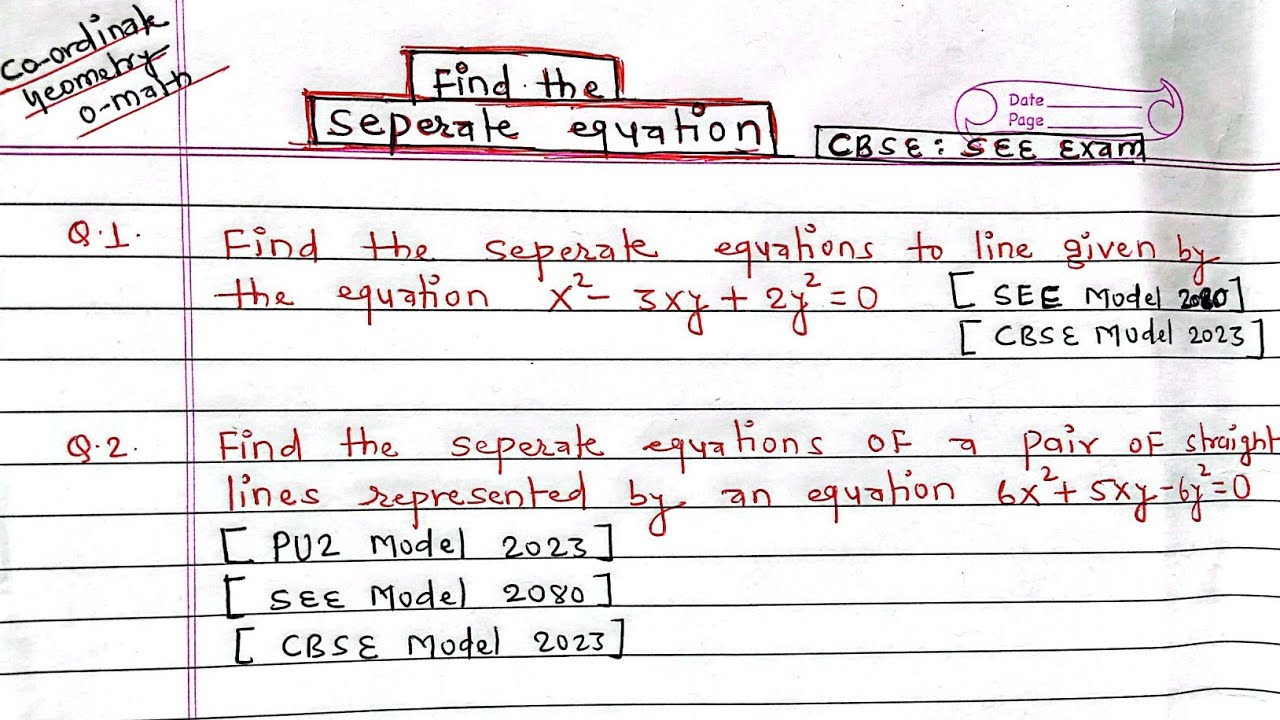 co-ordinate
geometry
o-math
Find the
seperate equation
Date
Page
CBSE: SEE Exam
Q.1. Find the seperate equations to line given by
the equation x² - 3xy + 2y² = 0 [SEE Model 2080]
[CBSE Model 2023]
Q.2. Find the seperate equations of a pair of straight
lines represented by an equation 6x² + 5xy - 6y² = 0
[PU2 Model 2023]
[SEE Model 2080]
[CBSE Model 2023]